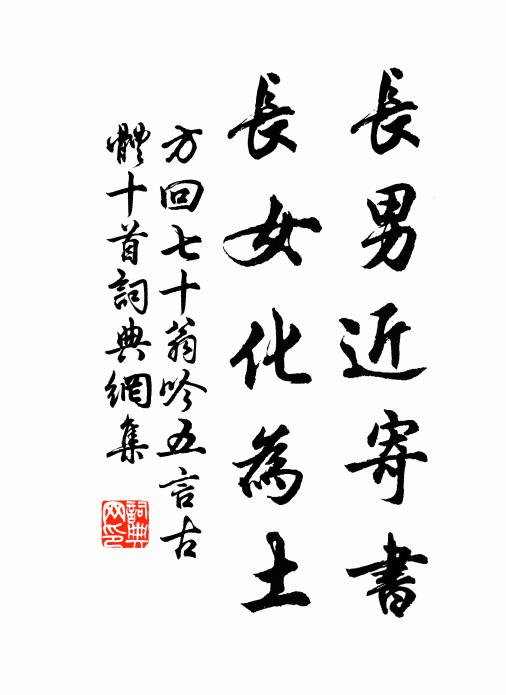 長男近寄書
長女化為土
方回七十翁吟五言古
體十首詞典網集
詞典网印